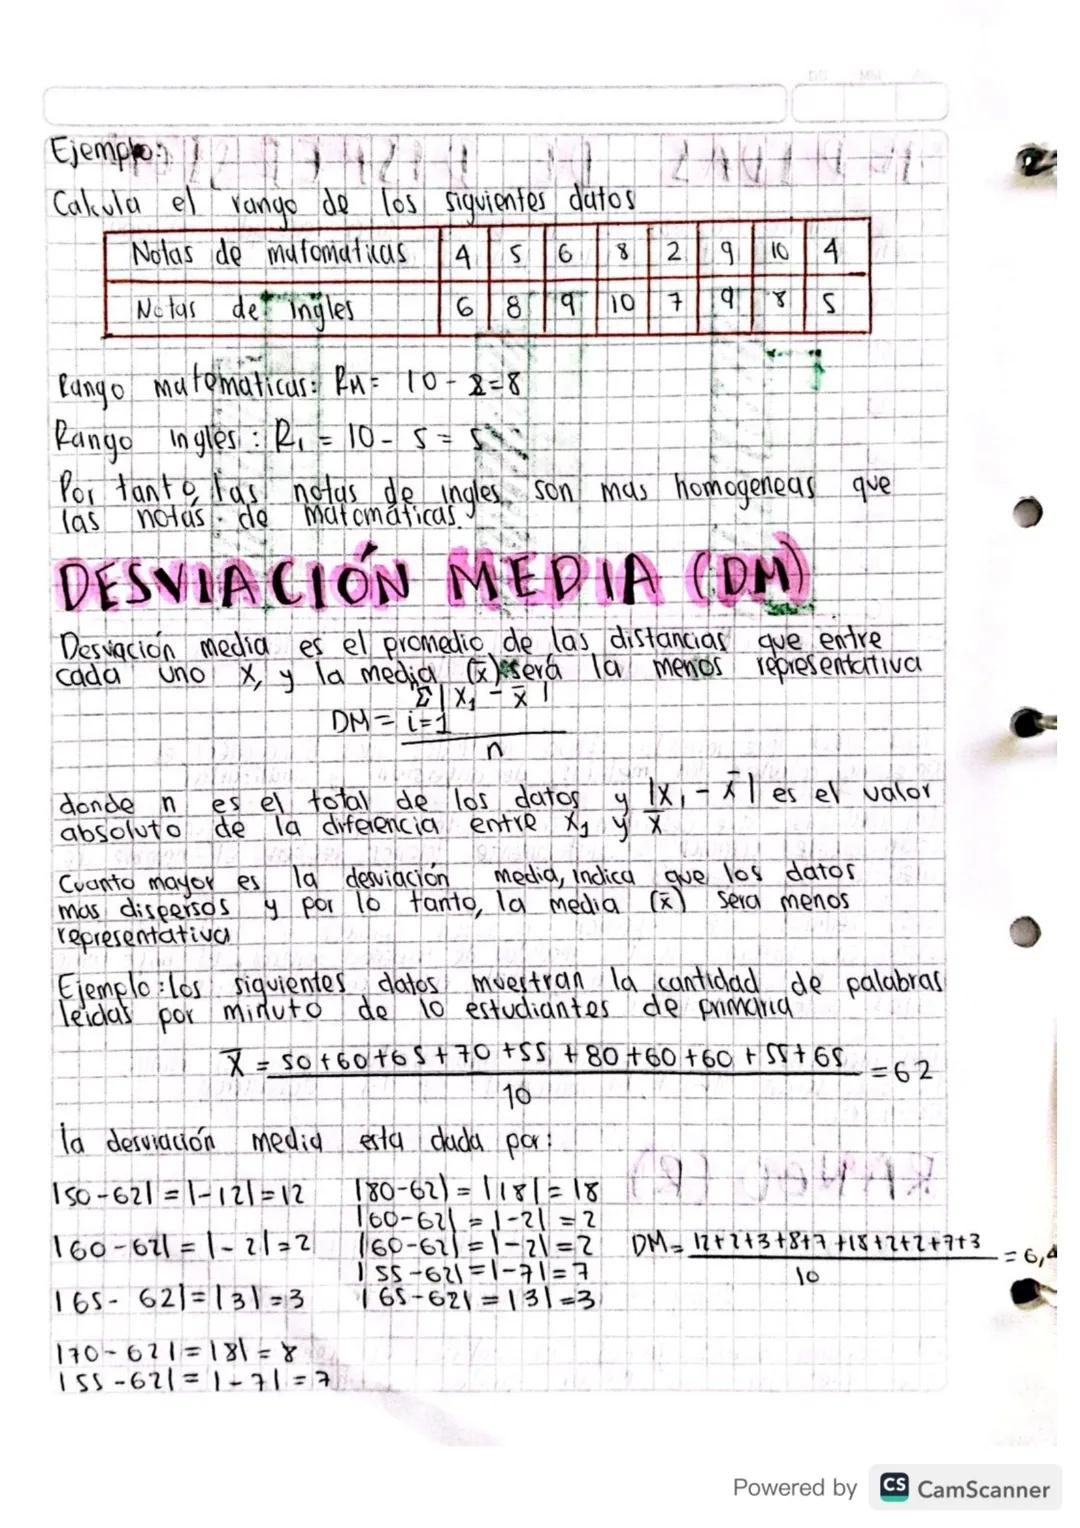 Ejemplo:
Calcula el rango de los siguientes datos
Notas de matematicas 4 5 6 8 2 9 10 4
Notas de ingles 6 8 9 10 7 9 8 5
Rango matematicas: RM = 10 - 2 = 8
Rango ingles: R₁ = 10 - 5 = 5
Por tanto, las notas de ingles son mas homogeneas que
las notas de matematicas.
DESVIACIÓN MEDIA (DM)
Desviación media es el promedio de las distancias que entre
cada uno X, y la media (x̄) será la menos representativa
Σ|X₁ - x̄|
DM = i=1
n
donde n es el total de los datos y |X₁ - x̄| es el valor
absoluto de la diferencia entre X₁ y x̄
Cuanto mayor es la desviación media, indica que los datos
mas dispersos y por lo tanto, la media (x̄) sera menos
representativa
Ejemplo: los siguientes datos muestran la cantidad de palabras
leidas por minuto de 10 estudiantes de primaria
X̄ = 50+60+65+70+55+80+60+60+55+65 = 62
10
la desviación media esta dada por:
|50-62| = |-12| = 12
|60-62| = |-2| = 2
|65-62| = |3| = 3
|70-62| = |8| = 8
|55-62| = |-7| = 7
|80-62| = |18| = 18
|60-62| = |-2| = 2
|60-62| = |-2| = 2
|55-62| = |-7| = 7
|65-62| = |3| = 3
DM = 12+2+3+8+7+18+2+2+7+3 = 6,4
10
Powered by CS CamScanner